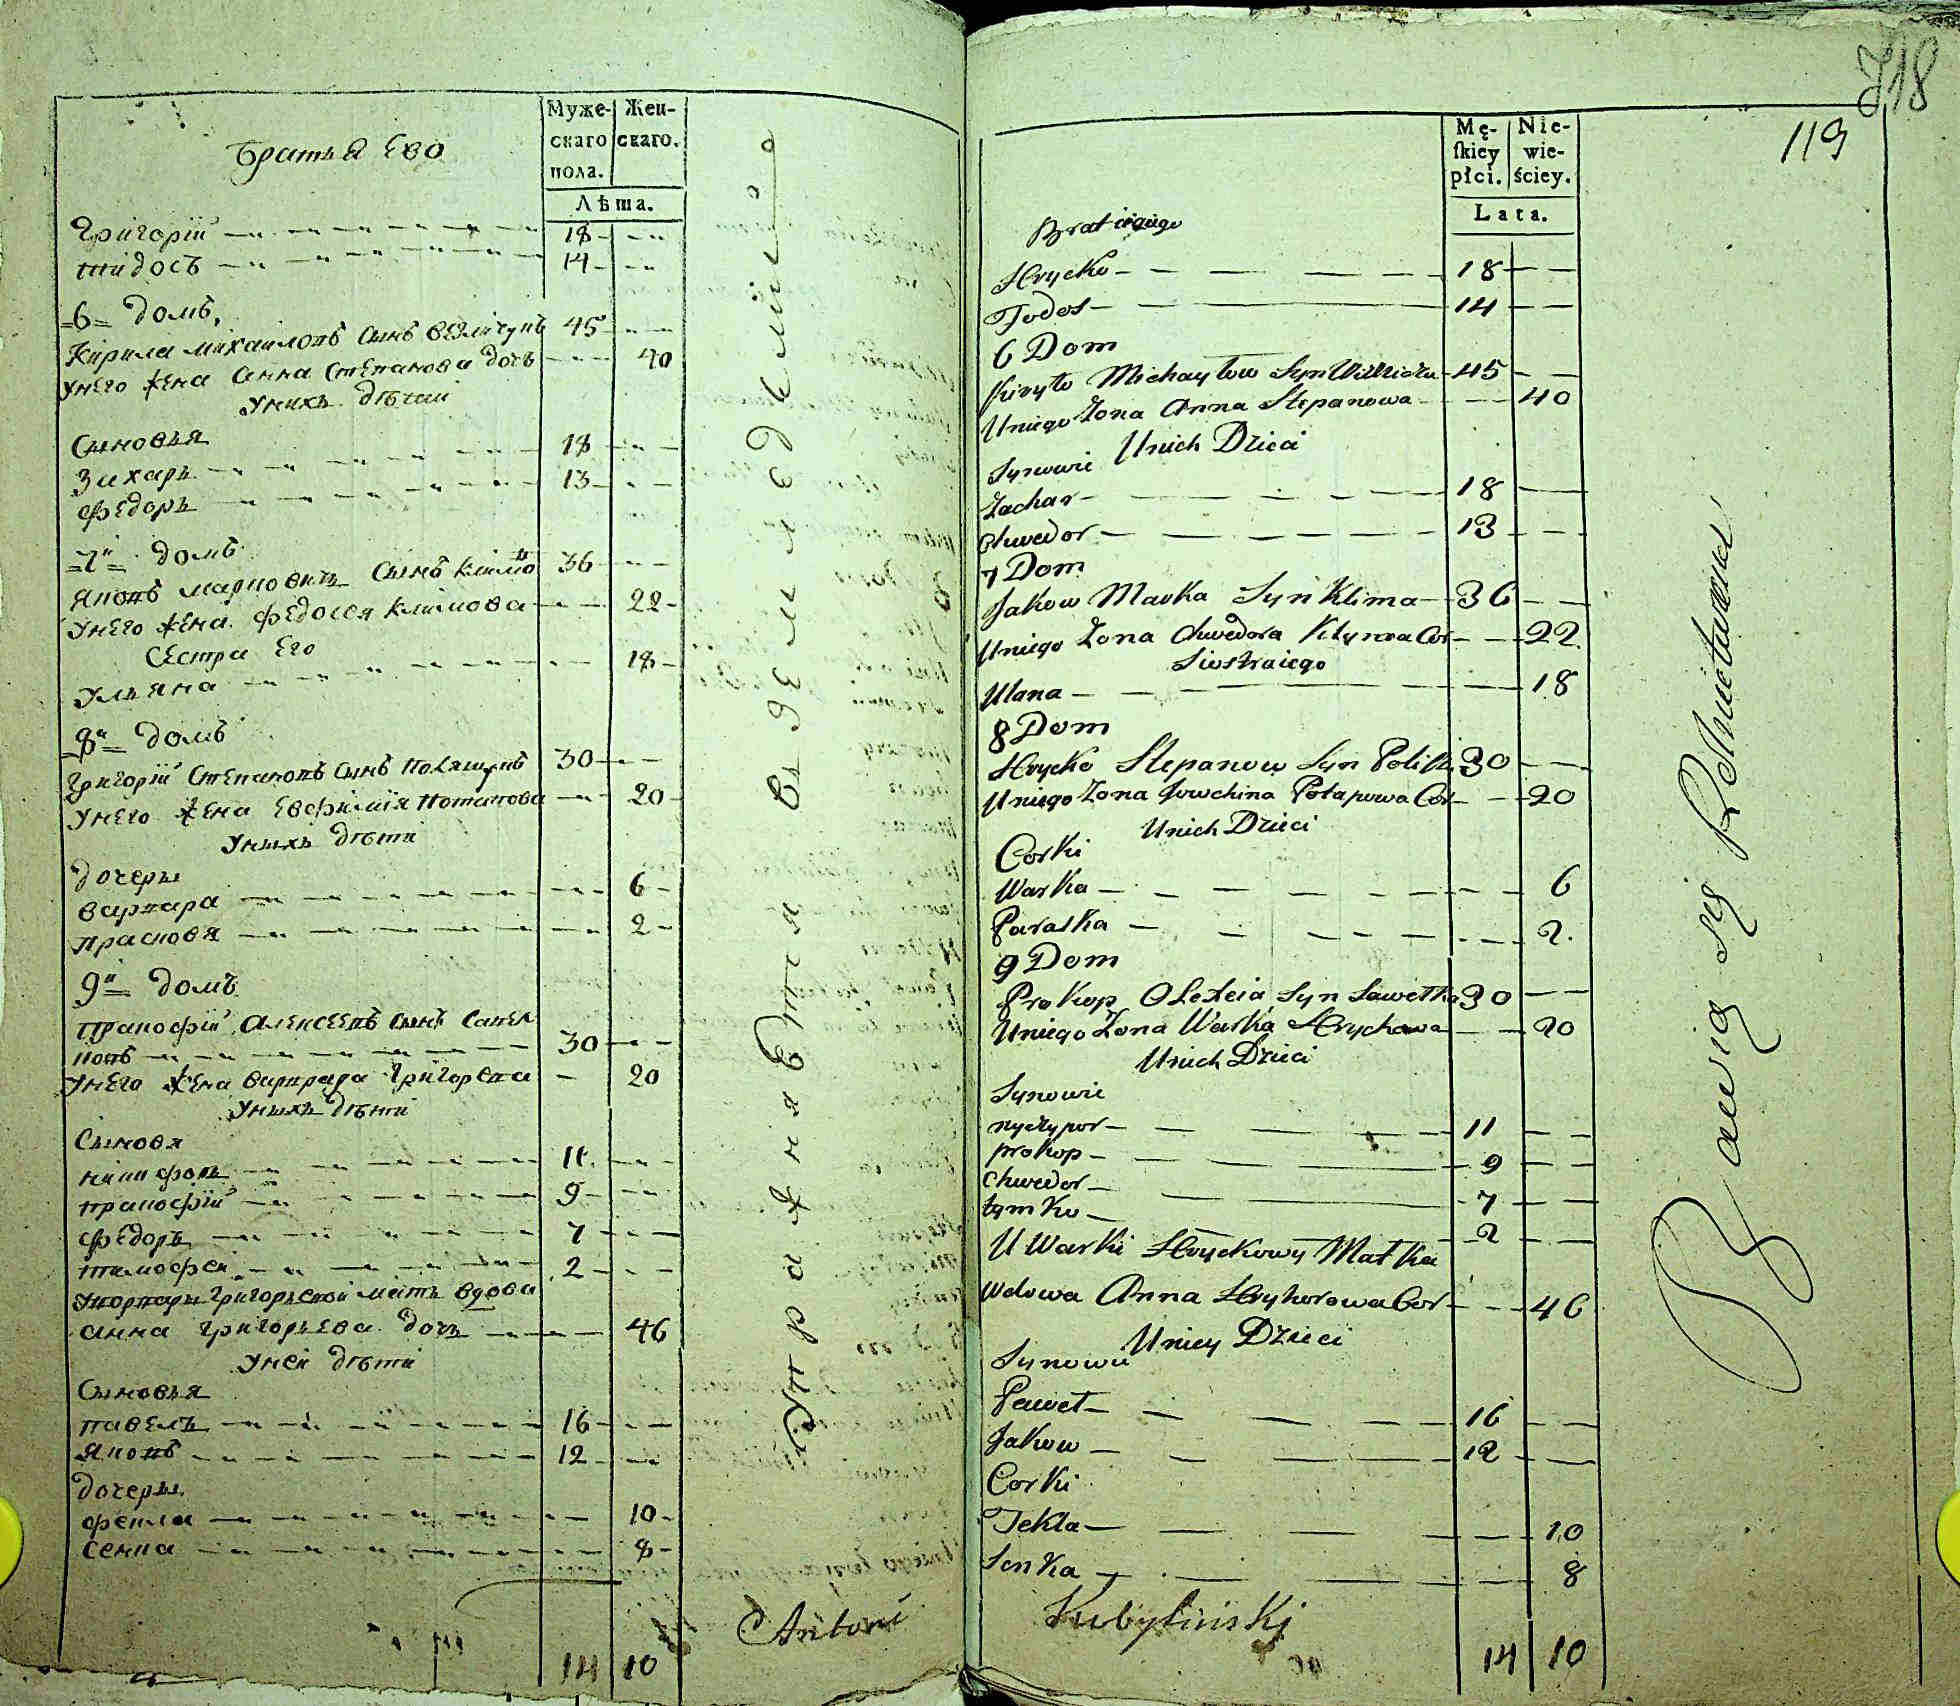 Муже-
скаго
пола.
Жен-
скаго.
Лѣта.
Братья Ево
Григорій 18
тидосъ 14
=6= домъ,
Кирила михаиловъ сынъ 45
унего жена анна степанова дочъ 40
Унихъ дѣтии
Сыновья
Захаръ 18
федоръ 13
=7= домъ
Яковъ марковичъ сынъ клима 36
унего жена федосея климова 22
Сестра Его
Ульяна 18
=8= домъ
Григорій степановъ сынъ 30
унего жена Евфимія потапова 20
Унихъ дѣти
дочеры
варвара 6
прасковя 2
9 = домъ
Пракофій Алексеевъ сынъ Савел
ковъ 30
унего жена варвара григорева 20
Унихъ дѣти
Сыновя
никифоръ 11
пракофій 9
федоръ 7
тимофей 2
Григорьевой мать вдова
анна григорьева дочъ 46
Уней дѣти
Сыновья
павелъ 16
Яковъ 12
дочеры
фекла 10
сенка 8
14 10
Упражняется в земледеліи
Antoni Kubyliński
718
119
Mę-
skiey
płci.
Nie-
wie-
ściey.
Lata.
Brat iego
Hrycko 18
Todos 14
6 Dom
Kiryło Michayłow Syn 45
Uniego Zona Anna Stepanowa 40
Unich Dzieci
Synowie
Zachar 18
Chwedor 13
7 Dom
Jakow Marka Syn Klima 36
Uniego Zona Chwedora Kłymowa Cor 22
Siostra iego
Ulana 18
8 Dom
Hrycko Stepanow Syn 30
Uniego Zona Jowchina Potapowa Cor 20
Unich Dzieci
Corki
Warka 6
Paraska 2
9 Dom
Prokop Olexeia Syn Sawełka 30
Uniego Zona Warka Hrychowa 20
Unich Dzieci
Synowie
nyczypor 11
prokop 9
Chwedor 7
tymko 2
U Warki Hryckowy Matka
Wdowa Anna Hryhorowa Cor 46
Uniey Dzieci
Synowie
Paweł 16
Jakow 12
Corki
Tekla 10
Senka 8
14 10
Bawią się Rolnictwem